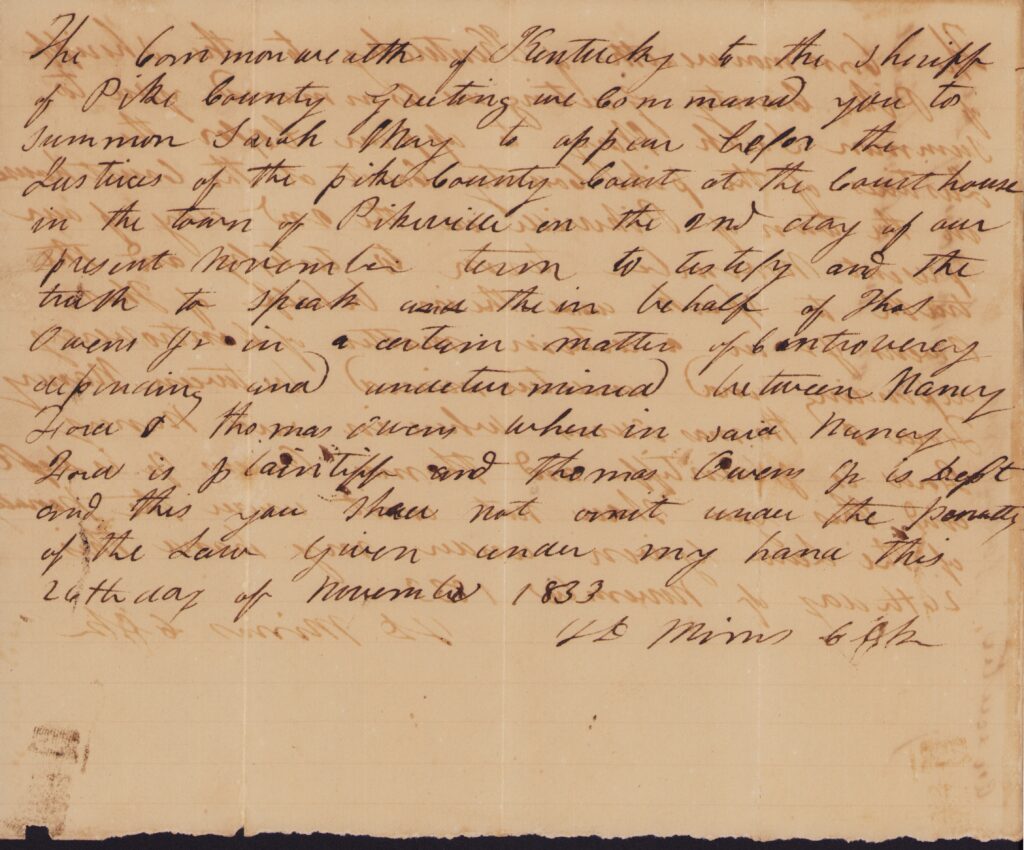 The Commonwealth of Kentucky to the Sheriff
of Pike County Greeting we Command you to
summon Sarah May to appear befor the
Justices of the pike County Court at the Court house
in the town of Pikeville on the 2nd day of our
present November term to testify and the
truth to speak and the in behalf of Thos
Owens Jr in a certain matter of Controvercy
depending and undetermined between Nancy
Ford & thomas Owens where in said Nancy
Ford is plaintiff and thomas Owens Jr is Deft
and this you shall not omit under the penalty
of the Law Given under my hand this
26th day of November 1833
Mims Clk